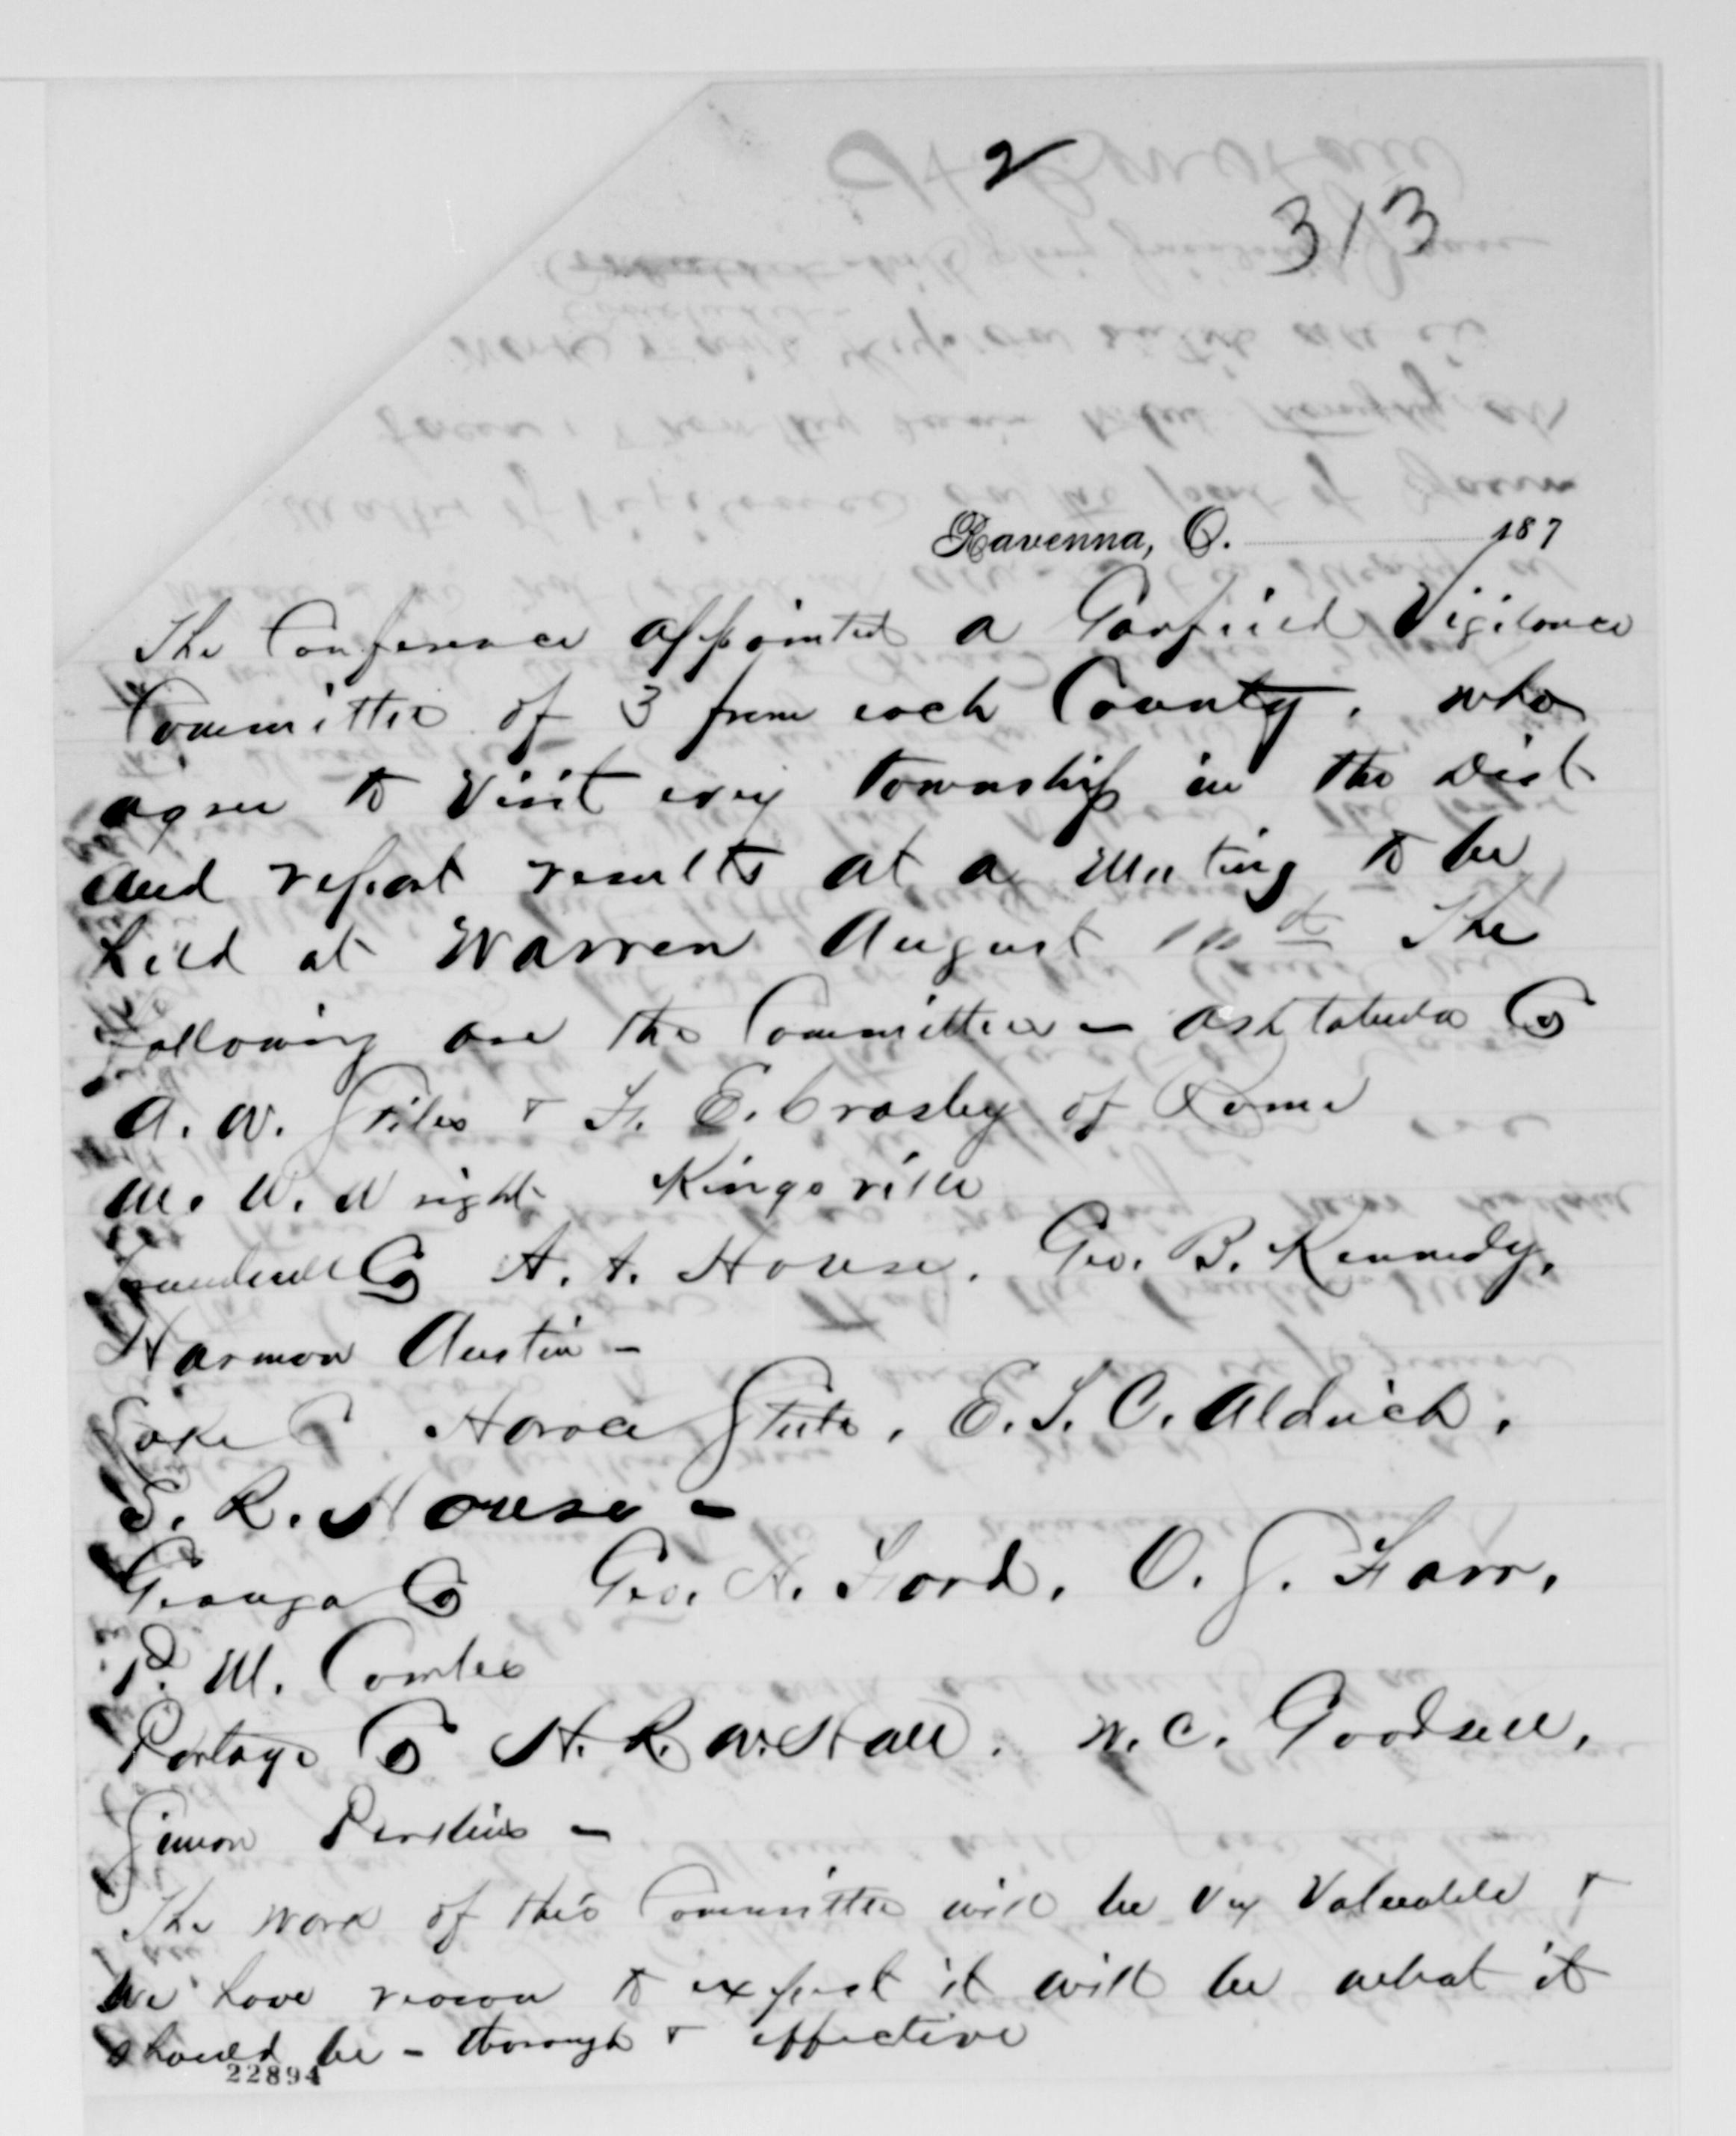 2
313
Ravenna, O. 187
The Conference appointed a Garfield Vigilance
Committee of 3 from each County, who
agree to visit every township in the Dist
and report results at a meeting to be
held at Warren August The
following are the Committee - Ashtabula Co
A. W. Stiles & F. E. Crosby of Rome
M. W. Wright Kingsville
Trumbull Co A. A. House, Geo. B. Kennedy,
Harmon Austin -
Lake Co Horace Steele, E. T. C. Aldrich,
S. R. House -
Geauga Co Geo. H. Ford, O. S. Farr,
P. M. Cowles
Portage Co H. R. W. Hall, W. C. Goodsell,
Simon Perkins -
The work of this Committee will be very valuable &
we have reason to expect it will be what it
should be - thorough & effective
22894